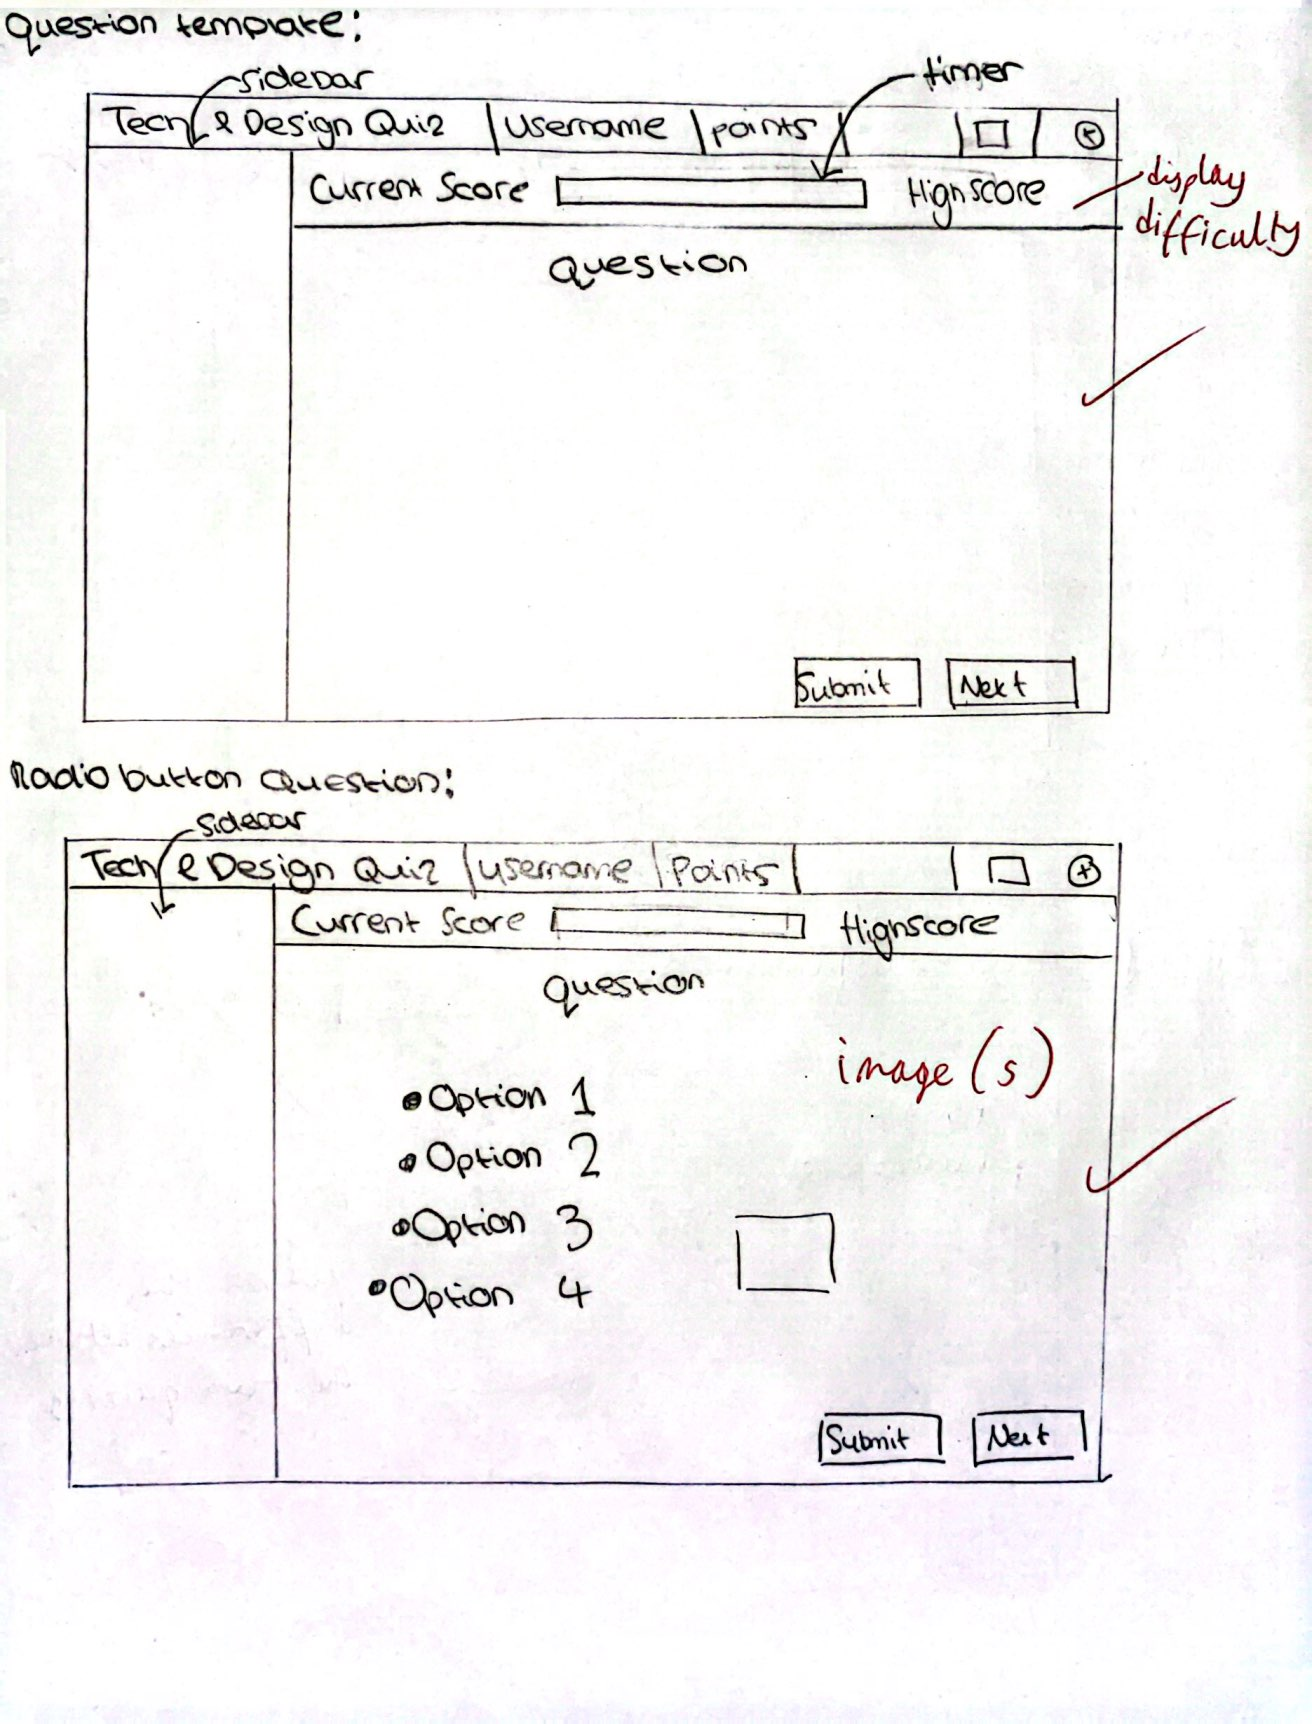 Question template:
sidebar
timer
Tech & Design Quiz username points
Current Score Highscore
display
difficulty
question
Submit Next
Radio button Question:
sidebar
Tech & Design Quiz username Points
Current Score Highscore
question
image(s)
Option 1
Option 2
Option 3
Option 4
Submit Next